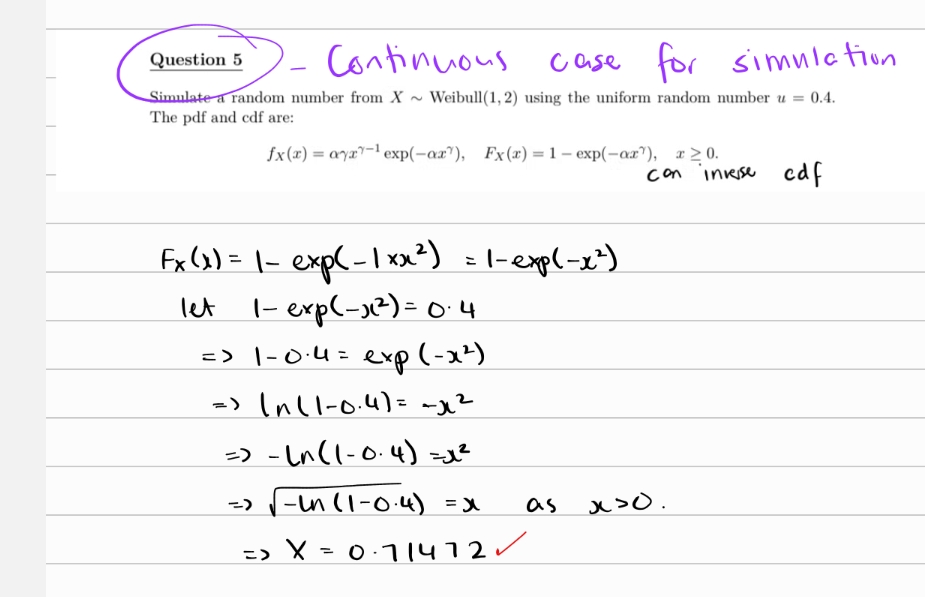 Question 5 - Continuous case for simulation
Simulate a random number from X ∼ Weibull(1, 2) using the uniform random number u = 0.4.
The pdf and cdf are:
fX(x) = αγx^(γ−1) exp(−αx^γ), FX(x) = 1 − exp(−αx^γ), x ≥ 0.
can inverse cdf
Fx(x) = 1 - exp(-1×x²) = 1-exp(-x²)
let 1- exp(-x²) = 0.4
=> 1-0.4 = exp(-x²)
=> ln(1-0.4) = -x²
=> -ln(1-0.4) = x²
=> √-ln(1-0.4) = x as x>0.
=> X = 0.71472 ✓